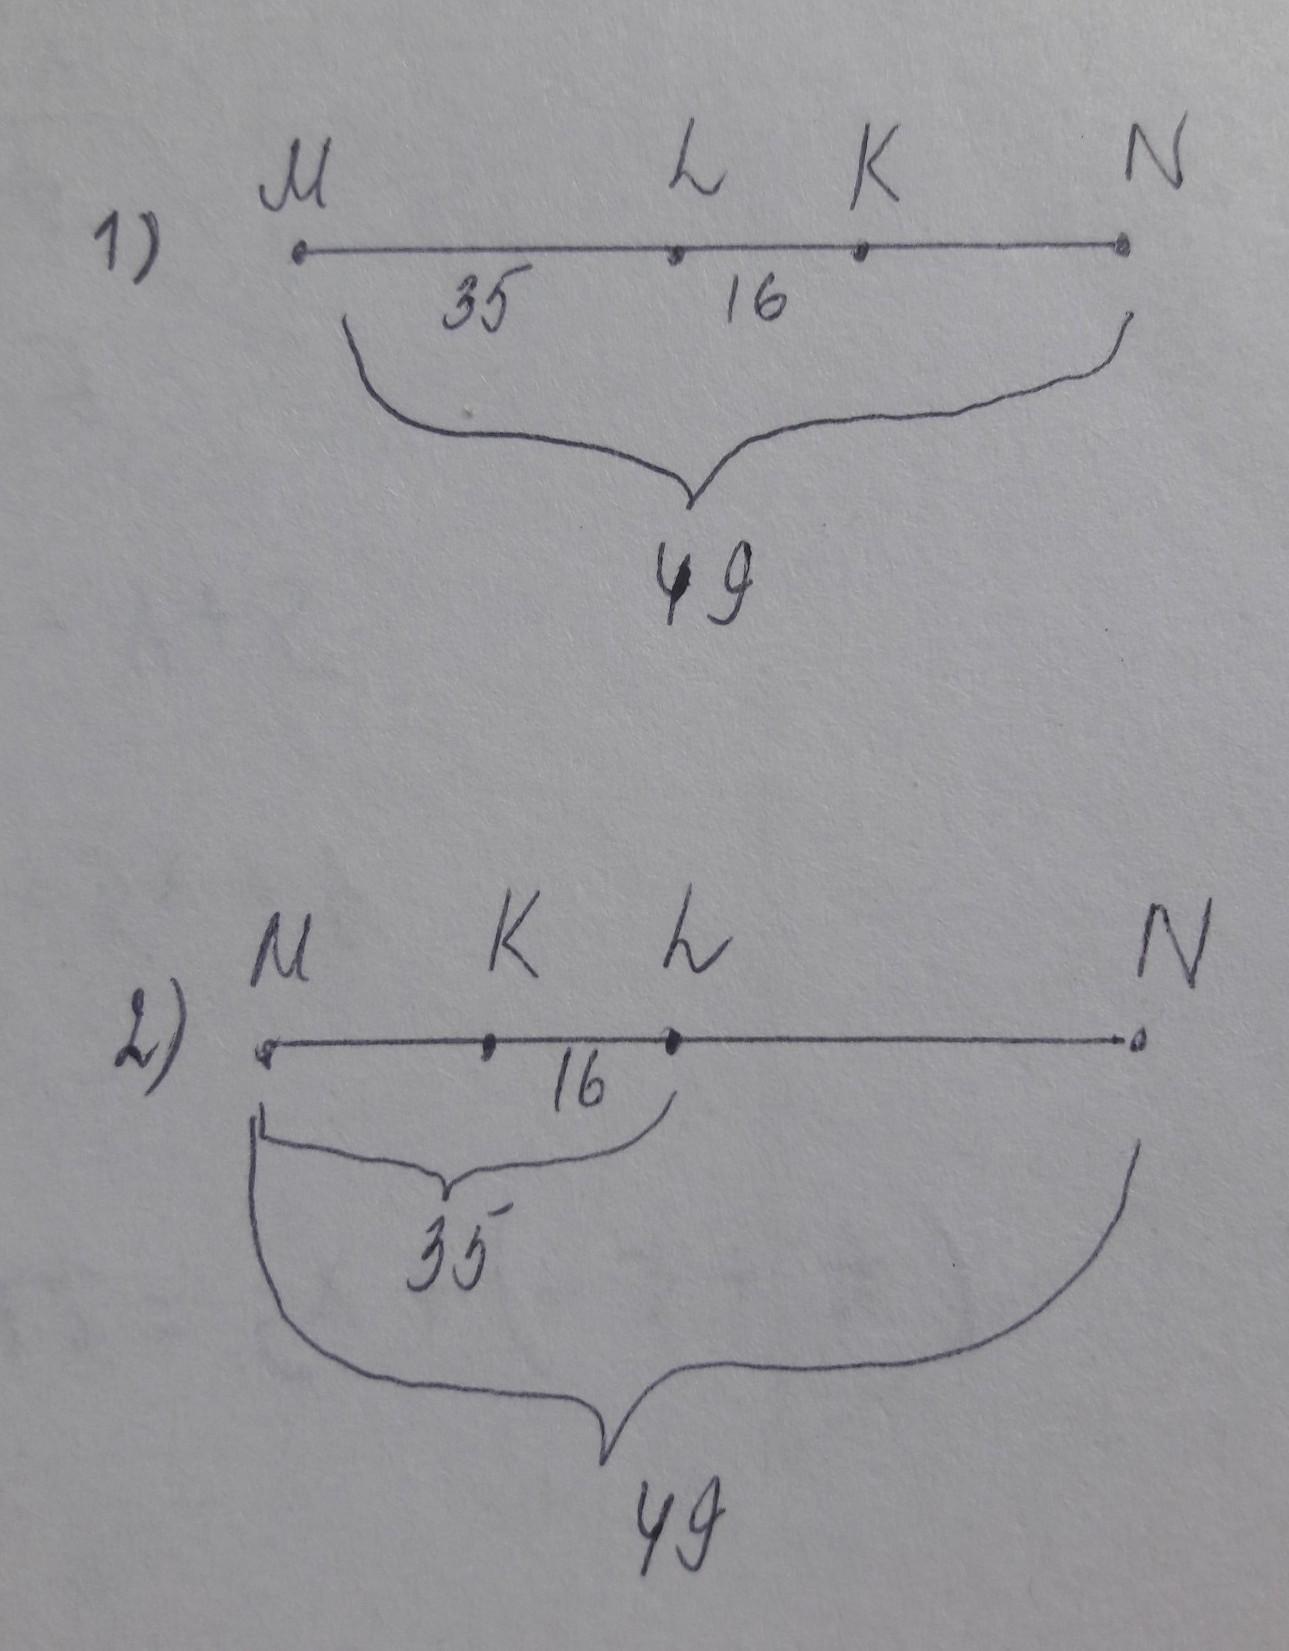 M L K N
1)
35 16
49
M K L N
2)
16
35
49